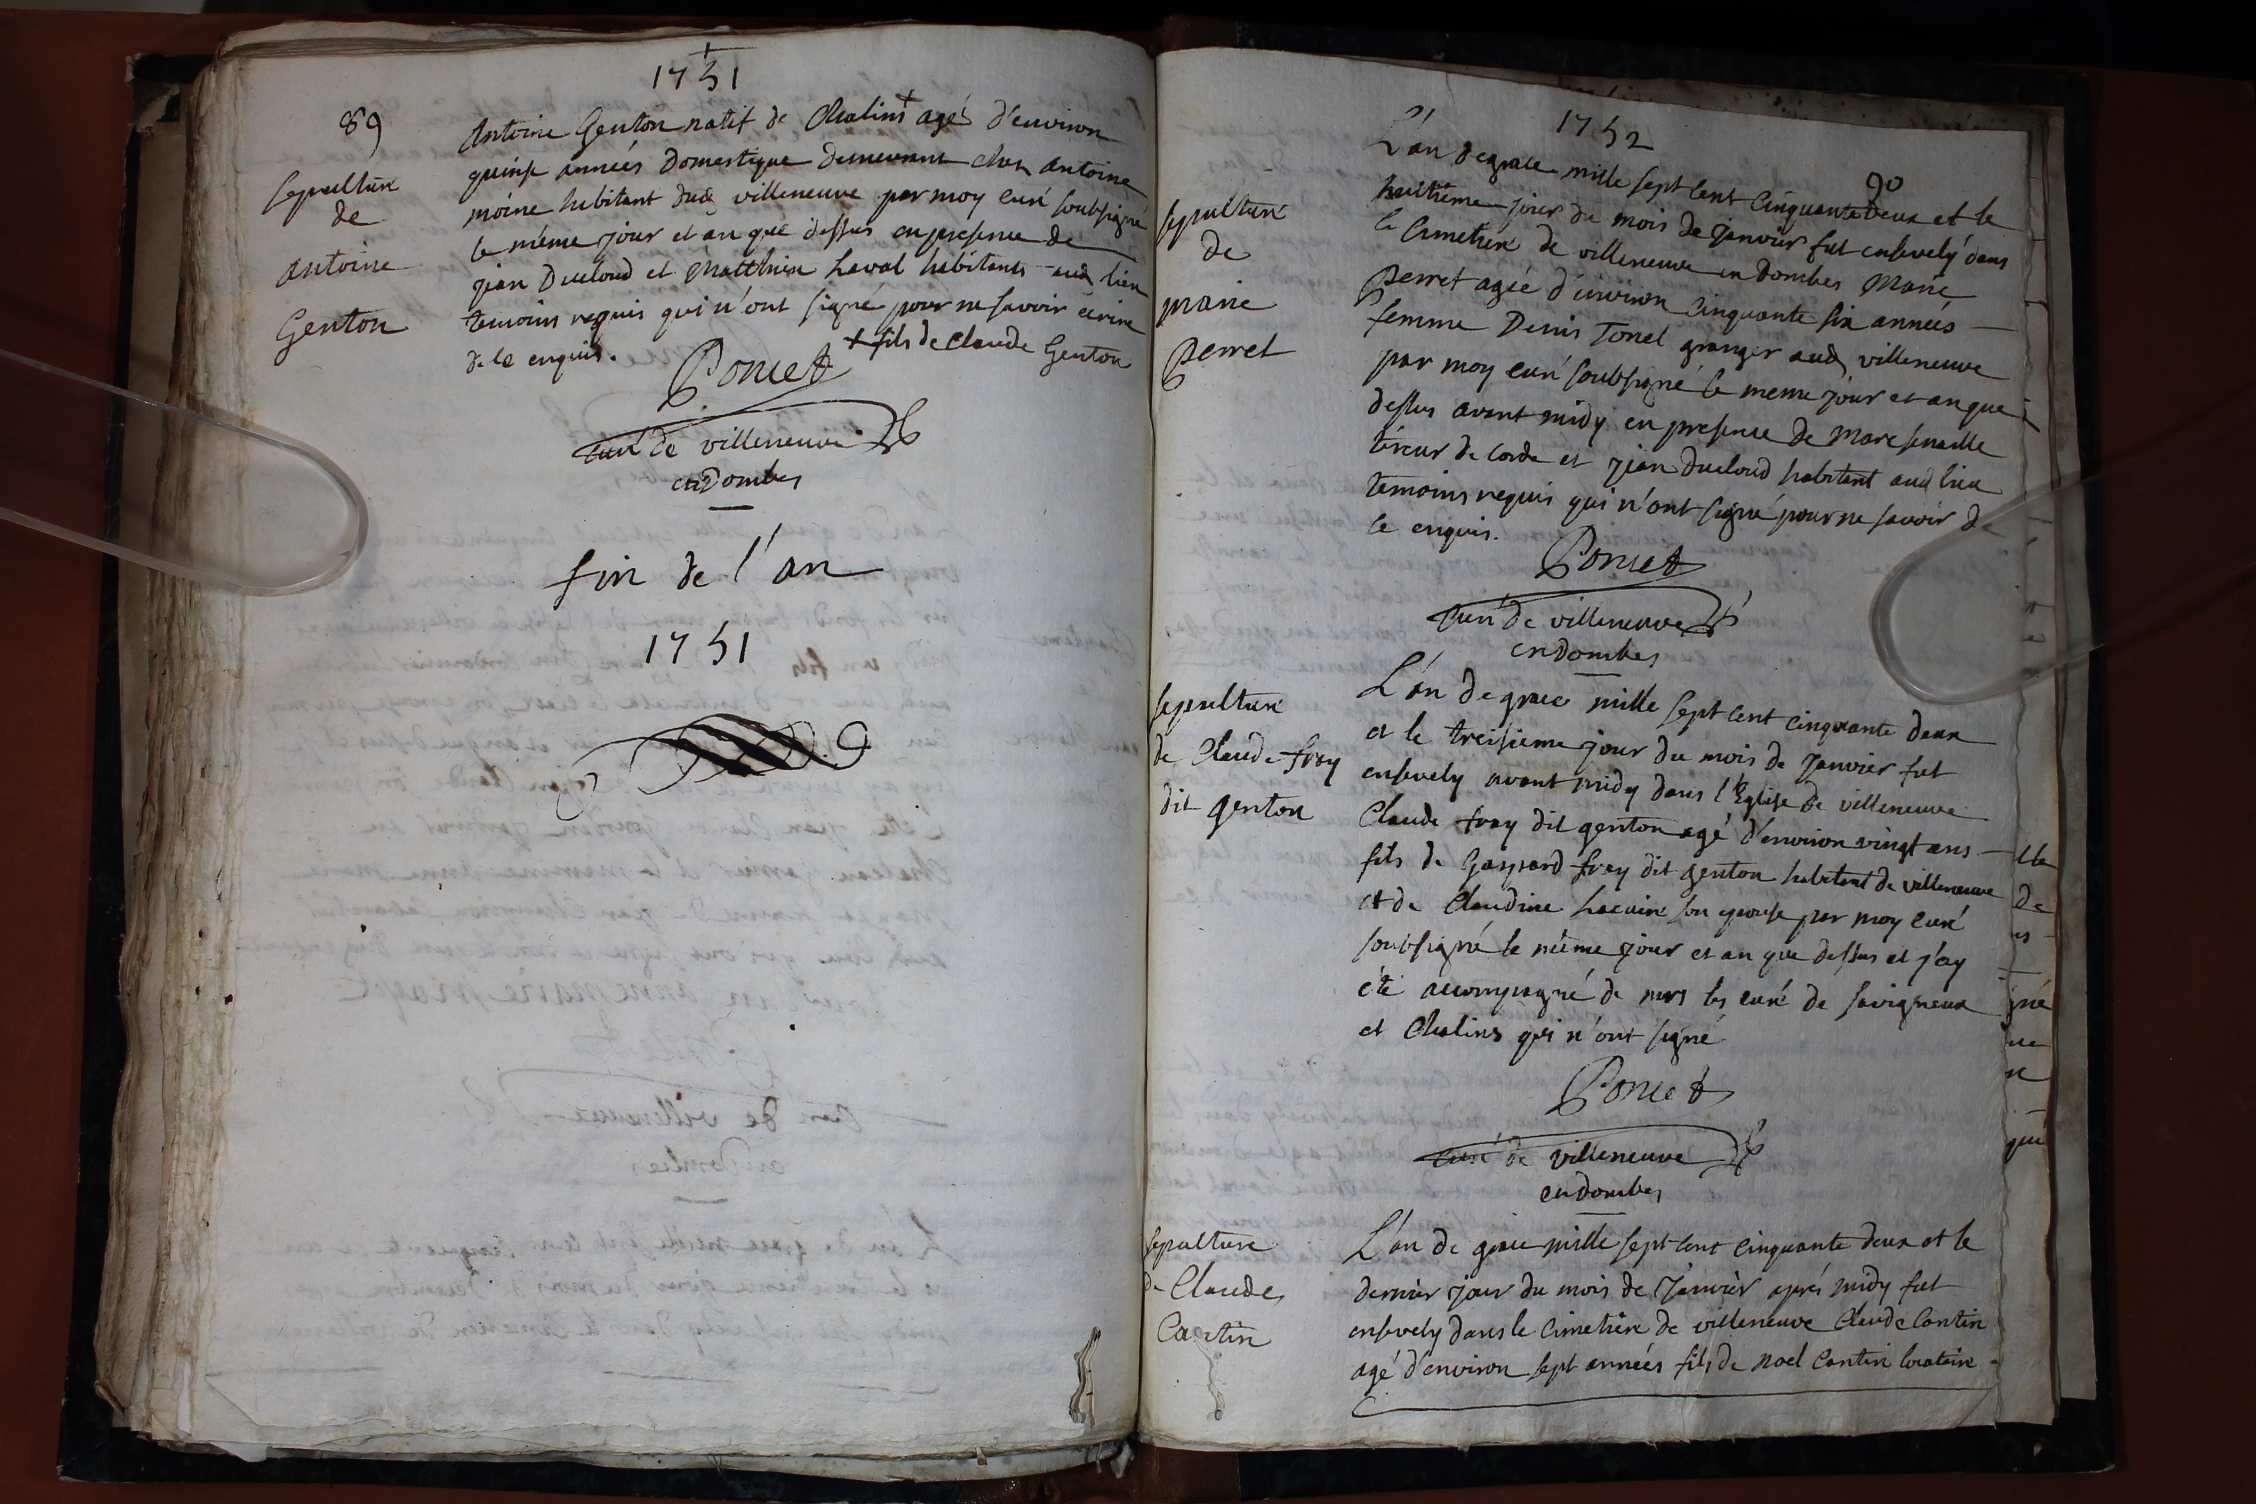 1751
89
sepulture
de
antoine
Genton
Antoine Genton natif de Chalins + agé d'environ
quinse années domestique demeurant chez antoine
moine habitant dud villeneuve par moy curé soubsigné
le même jour et an que dessus en presence de
jean Ducloud et Matthieu Laval habitants aud lieu
temoins requis qui n'ont signé pour ne savoir écrire
de le enquis.
+ fils de claude Genton
Poncet
curé de villeneuve
en Dombes
fin de l'an
1751
1752
90
sepulture
de
marie
perret
L'an de grace mille sept cent cinquante deux et le
huitième jour du mois de janvier fut ensevely dans
le Cimetiere de villeneuve en Dombes Marie
perret agée d'environ cinquante six années
femme Denis Tonel granger aud villeneuve
par moy curé soubsigné le meme jour et an que
dessus avant midy en presence de Marc senaille
tireur de corde et jean Ducloud habitant aud lieu
temoins requis qui n'ont signé pour ne savoir de
le enquis.
Poncet
curé de villeneuve
en Dombes
sepulture
de Claude fray
dit genton
L'an de grace mille sept cent cinquante deux
et le treisieme jour du mois de janvier fut
ensevely avant midy dans l'Eglise de villeneuve
Claude fray dit genton agé d'environ vingt ans
fils de Gaspard fray dit genton habitant de villeneuve
et de Claudine Lacuire son epouse par moy curé
soubsigné le même jour et an que dessus et j'ay
été accompagné de mrs les curé de savigneux
et Chalins qui n'ont signé
Poncet
curé de villeneuve
en Dombes
sepulture
de Claude
Cantin
L'an de grace mille sept cent cinquante deux et le
dernier jour du mois de janvier aprés midy fut
ensevely dans le cimetiere de villeneuve Claude Cantin
agé d'environ sept années fils de noel Cantin locataire